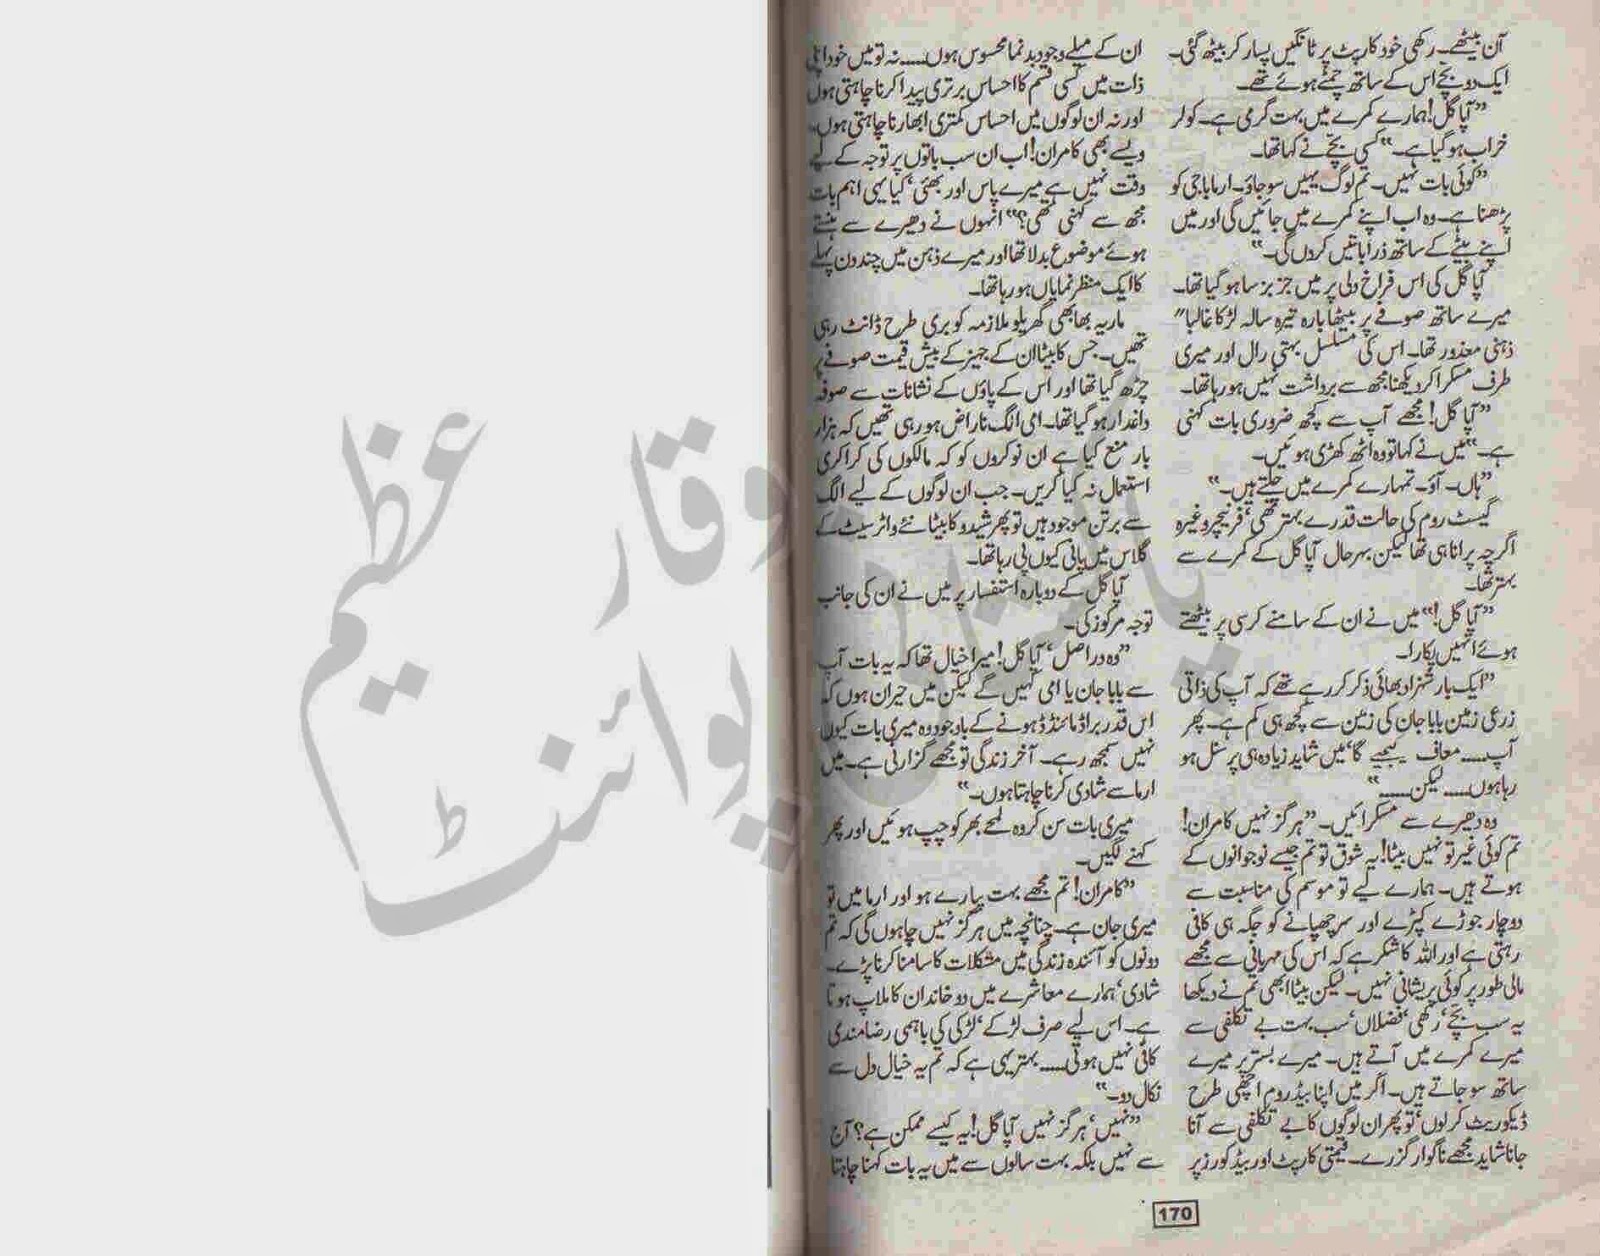 آن بیٹھے۔ رکھی خود کارپٹ پر ٹانگیں پسار کر بیٹھ گئی۔
ایک دو بچے اس کے ساتھ چمٹے ہوئے تھے۔
”آپا گل! ہمارے کمرے میں بہت گرمی ہے۔ کولر
خراب ہو گیا ہے۔“ کسی بچے نے کہا تھا۔
”کوئی بات نہیں۔ تم لوگ یہیں سو جاؤ۔ ارما باجی کو
پڑھنا ہے۔ وہ اب اپنے کمرے میں جائیں گی اور میں
اپنے بیٹے کے ساتھ ذرا باتیں کروں گی۔“
آپا گل کی اس فراخ دلی پر میں جزبز سا ہو گیا تھا۔
میرے ساتھ صوفے پر بیٹھا بارہ تیرہ سالہ لڑکا غالبا"
ذہنی معذور تھا۔ اس کی مسلسل بہتی رال اور میری
طرف مسکرا کر دیکھنا مجھ سے برداشت نہیں ہو رہا تھا۔
”آپا گل! مجھے آپ سے کچھ ضروری بات کہنی
ہے۔“ میں نے کہا تو وہ اٹھ کھڑی ہوئیں۔
”ہاں۔ آؤ۔ تمہارے کمرے میں چلتے ہیں۔“
گیسٹ روم کی حالت قدرے بہتر تھی، فرنیچر وغیرہ
اگرچہ پرانا ہی تھا لیکن بہرحال آپا گل کے کمرے سے
بہتر تھا۔
”آپا گل!“ میں نے ان کے سامنے کرسی پر بیٹھتے
ہوئے انہیں پکارا۔
”ایک بار شہزاد بھائی ذکر کر رہے تھے کہ آپ کی ذاتی
زرعی زمین بابا جان کی زمین سے کچھ ہی کم ہے۔ پھر
آپ۔۔۔۔۔ معاف کیجیے گا، میں شاید زیادہ ہی پرسنل ہو
رہا ہوں۔۔۔۔۔ لیکن۔۔۔۔۔“
وہ دھیرے سے مسکرائیں۔ ”ہرگز نہیں کامران!
تم کوئی غیر تو نہیں بیٹا! یہ شوق تو تم جیسے نوجوانوں کے
ہوتے ہیں۔ ہمارے لیے تو موسم کی مناسبت سے
دو چار جوڑے کپڑے اور سر چھپانے کو جگہ ہی کافی
رہتی ہے اور اللہ کا شکر ہے کہ اس کی مہربانی سے مجھے
مالی طور پر کوئی پریشانی نہیں۔ لیکن بیٹا ابھی تم نے دیکھا
یہ سب بچے، رکھی، فضلاں، سب بہت بے تکلفی سے
میرے کمرے میں آتے ہیں۔ میرے بستر پر میرے
ساتھ سو جاتے ہیں۔ اگر میں اپنا بیڈ روم اچھی طرح
ڈیکوریٹ کر لوں، تو پھر ان لوگوں کا بے تکلفی سے آنا
جانا شاید مجھے ناگوار گزرے۔ قیمتی کارپٹ اور بیڈ کورز پر
ان کے میلے وجود بدنما محسوس ہوں۔۔۔۔۔ نہ تو میں خود اپنی
ذات میں کسی قسم کا احساس برتری پیدا کرنا چاہتی ہوں
اور نہ ان لوگوں میں احساس کمتری ابھارنا چاہتی ہوں۔
ویسے بھی کامران! اب ان سب باتوں پر توجہ کے لیے
وقت نہیں ہے میرے پاس اور بھئی، کیا یہی اہم بات
مجھ سے کہنی تھی؟“ انہوں نے دھیرے سے ہنستے
ہوئے موضوع بدلا تھا اور میرے ذہن میں چند دن پہلے
کا ایک منظر نمایاں ہو رہا تھا۔
ماریہ بھابھی گھریلو ملازمہ کو بری طرح ڈانٹ رہی
تھیں۔ جس کا بیٹا ان کے جہیز کے بیش قیمت صوفے پر
چڑھ گیا تھا اور اس کے پاؤں کے نشانات سے صوفہ
داغدار ہو گیا تھا۔ امی الگ ناراض ہو رہی تھیں کہ ہزار
بار منع کیا ہے ان نوکروں کو کہ مالکوں کی کراکری
استعمال نہ کیا کریں۔ جب ان لوگوں کے لیے الگ
سے برتن موجود ہیں تو پھر شیدو کا بیٹا نئے واٹر سیٹ کے
گلاس میں پانی کیوں پی رہا تھا۔
آپا گل کے دوبارہ استفسار پر میں نے ان کی جانب
توجہ مرکوز کی۔
”وہ دراصل، آپا گل! میرا خیال تھا کہ یہ بات آپ
سے بابا جان یا امی کہیں گے لیکن میں حیران ہوں کہ
اس قدر براڈ مائنڈڈ ہونے کے باوجود وہ میری بات کیوں
نہیں سمجھ رہے۔ آخر زندگی تو مجھے گزارنی ہے۔ میں
ارما سے شادی کرنا چاہتا ہوں۔“
میری بات سن کر وہ لمحے بھر کو چپ ہوئیں اور پھر
کہنے لگیں۔
”کامران! تم مجھے بہت پیارے ہو اور ارما میں تو
میری جان ہے۔ چنانچہ میں ہرگز نہیں چاہوں گی کہ تم
دونوں کو آئندہ زندگی میں مشکلات کا سامنا کرنا پڑے۔
شادی، ہمارے معاشرے میں دو خاندان کا ملاپ ہوتا
ہے۔ اس لیے صرف لڑکے، لڑکی کی باہمی رضامندی
کافی نہیں ہوتی۔۔۔۔۔ بہتر یہی ہے کہ تم یہ خیال دل سے
نکال دو۔“
”نہیں، ہرگز نہیں آپا گل! یہ کیسے ممکن ہے؟ آج
سے نہیں بلکہ بہت سالوں سے میں یہ بات کہنا چاہتا
170
وقار عظیم
پاکستانی پوائنٹ